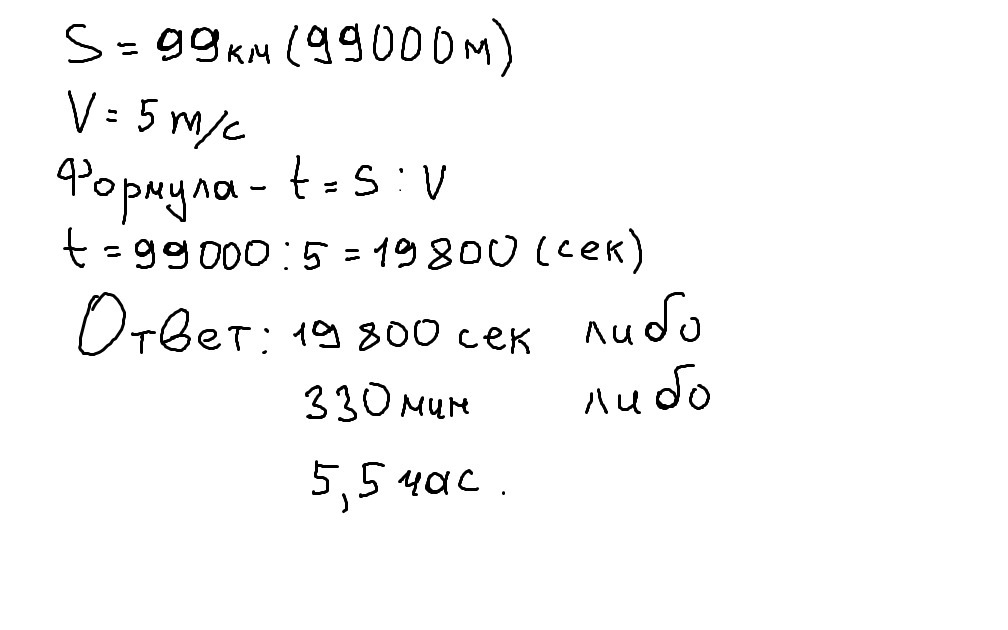 S = 99км (99000м)
V = 5 m/c
Формула - t = S : V
t = 99000 : 5 = 19800 (сек)
Ответ: 19800 сек либо
330 мин либо
5,5 час.